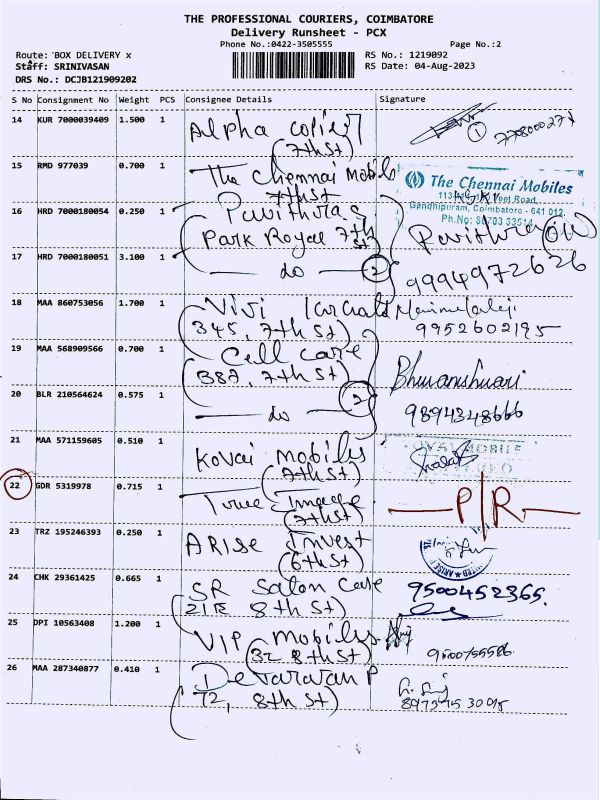 THE PROFESSIONAL COURIERS, COIMBATORE
Delivery Runsheet - PCX
Phone No.:0422-3505555 Page No.:2
Route: BOX DELIVERY x RS No.: 1219092
Staff: SRINIVASAN RS Date: 04-Aug-2023
DRS No.: DCJB121909202
S No Consignment No Weight PCS Consignee Details Signature
14 KUR 7000039409 1.500 1 Alpha
(7th St) 1
15 RMD 977039 0.700 1 The Chennai Mobils
7th St
The Chennai Mobiles
Gandhipuram, Coimbatore - 641 012.
16 HRD 7000180054 0.250 1 Pavithra's
Park Royal 7th St Pavithra
17 HRD 7000180051 3.100 1 do 2 9994972626
18 MAA 860753056 1.700 1 Vivi
345, 7th St) 9952602195
19 MAA 568909566 0.700 1 Cell care
387, 7th St) Bhuvaneshwari
20 BLR 210564624 0.575 1 do 2 9894348666
21 MAA 571159605 0.510 1 Kovai Mobiles
(7th St)
22 GDR 5319978 0.715 1 True Image
(7th St) P/R
23 TRZ 195246393 0.250 1 ARISE Invest
(6th St)
24 CHK 29361425 0.665 1 SR Salon Care 9500452365.
8th St)
25 DPI 10563408 1.200 1 VIP Mobiles
(32 8th St) 9500755586
26 MAA 287340877 0.410 1 Devarajan P
72, 8th St)